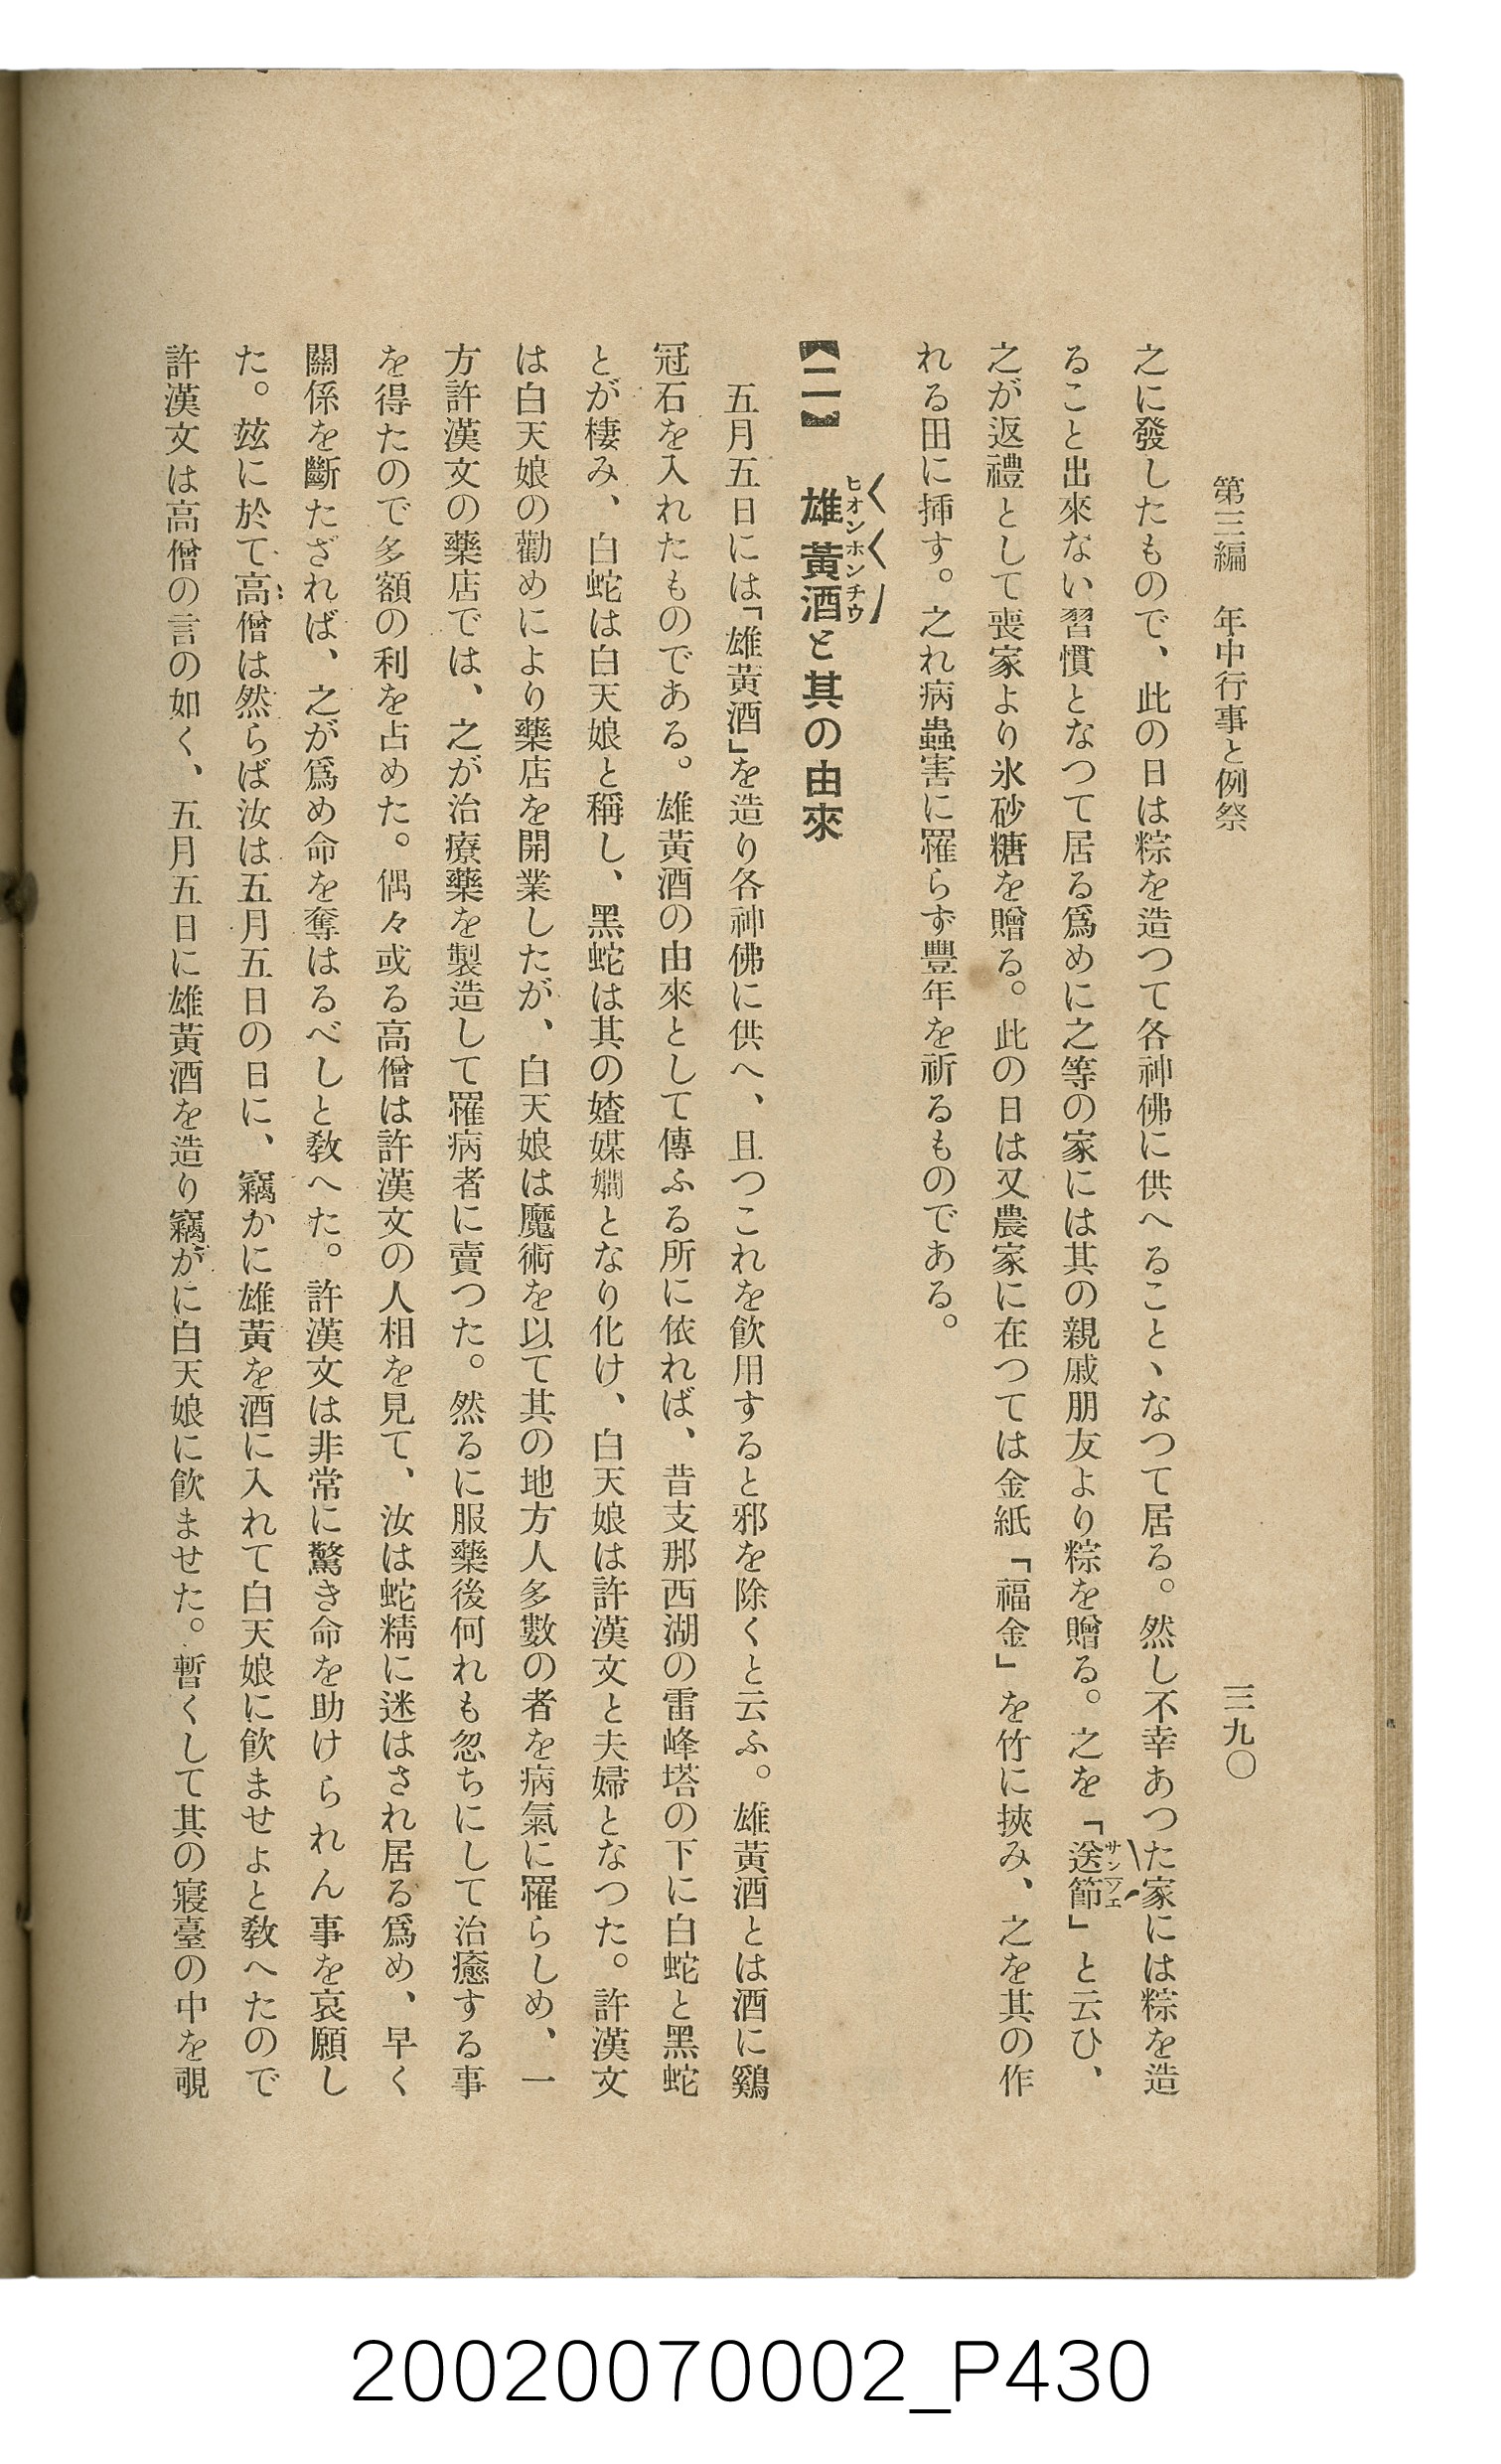 第三編　年中行事と例祭　三九〇
之に發したもので、此の日は粽を造つて各神佛に供へること丶なつて居る。然し不幸あつた家には粽を造
ること出來ない習慣となつて居る爲めに之等の家には其の親戚朋友より粽を贈る。之を「送節」と云ひ、
サンツエ
之が返禮として喪家より氷砂糖を贈る。此の日は又農家に在つては金紙「福金」を竹に挾み、之を其の作
れる田に揷す。之れ病蟲害に罹らず豐年を祈るものである。
【二】　雄黃酒と其の由來
ヒオンホンチウ
五月五日には「雄黃酒」を造り各神佛に供へ、且つこれを飮用すると邪を除くと云ふ。雄黃酒とは酒に鷄
冠石を入れたものである。雄黃酒の由來として傳ふる所に依れば、昔支那西湖の雷峰塔の下に白蛇と黑蛇
とが棲み、白蛇は白天娘と稱し、黑蛇は其の媒嫺となり化け、白天娘は許漢文と夫婦となつた。許漢文
は白天娘の勸めにより藥店を開業したが、白天娘は魔術を以て其の地方人多數の者を病氣に罹らしめ、一
方許漢文の藥店では、之が治療藥を製造して罹病者に賣つた。然るに服藥後何れも忽ちにして治癒する事
を得たので多額の利を占めた。偶々或る高僧は許漢文の人相を見て、汝は蛇精に迷はされ居る爲め、早く
關係を斷たざれば、之が爲め命を奪はるべしと敎へた。許漢文は非常に驚き命を助けられん事を哀願し
た。玆に於て高僧は然らば汝は五月五日の日に、竊かに雄黃を酒に入れて白天娘に飮ませよと敎へたので
許漢文は高僧の言の如く、五月五日に雄黃酒を造り竊がに白天娘に飮ませた。暫くして其の寢臺の中を覗
20020070002_P430